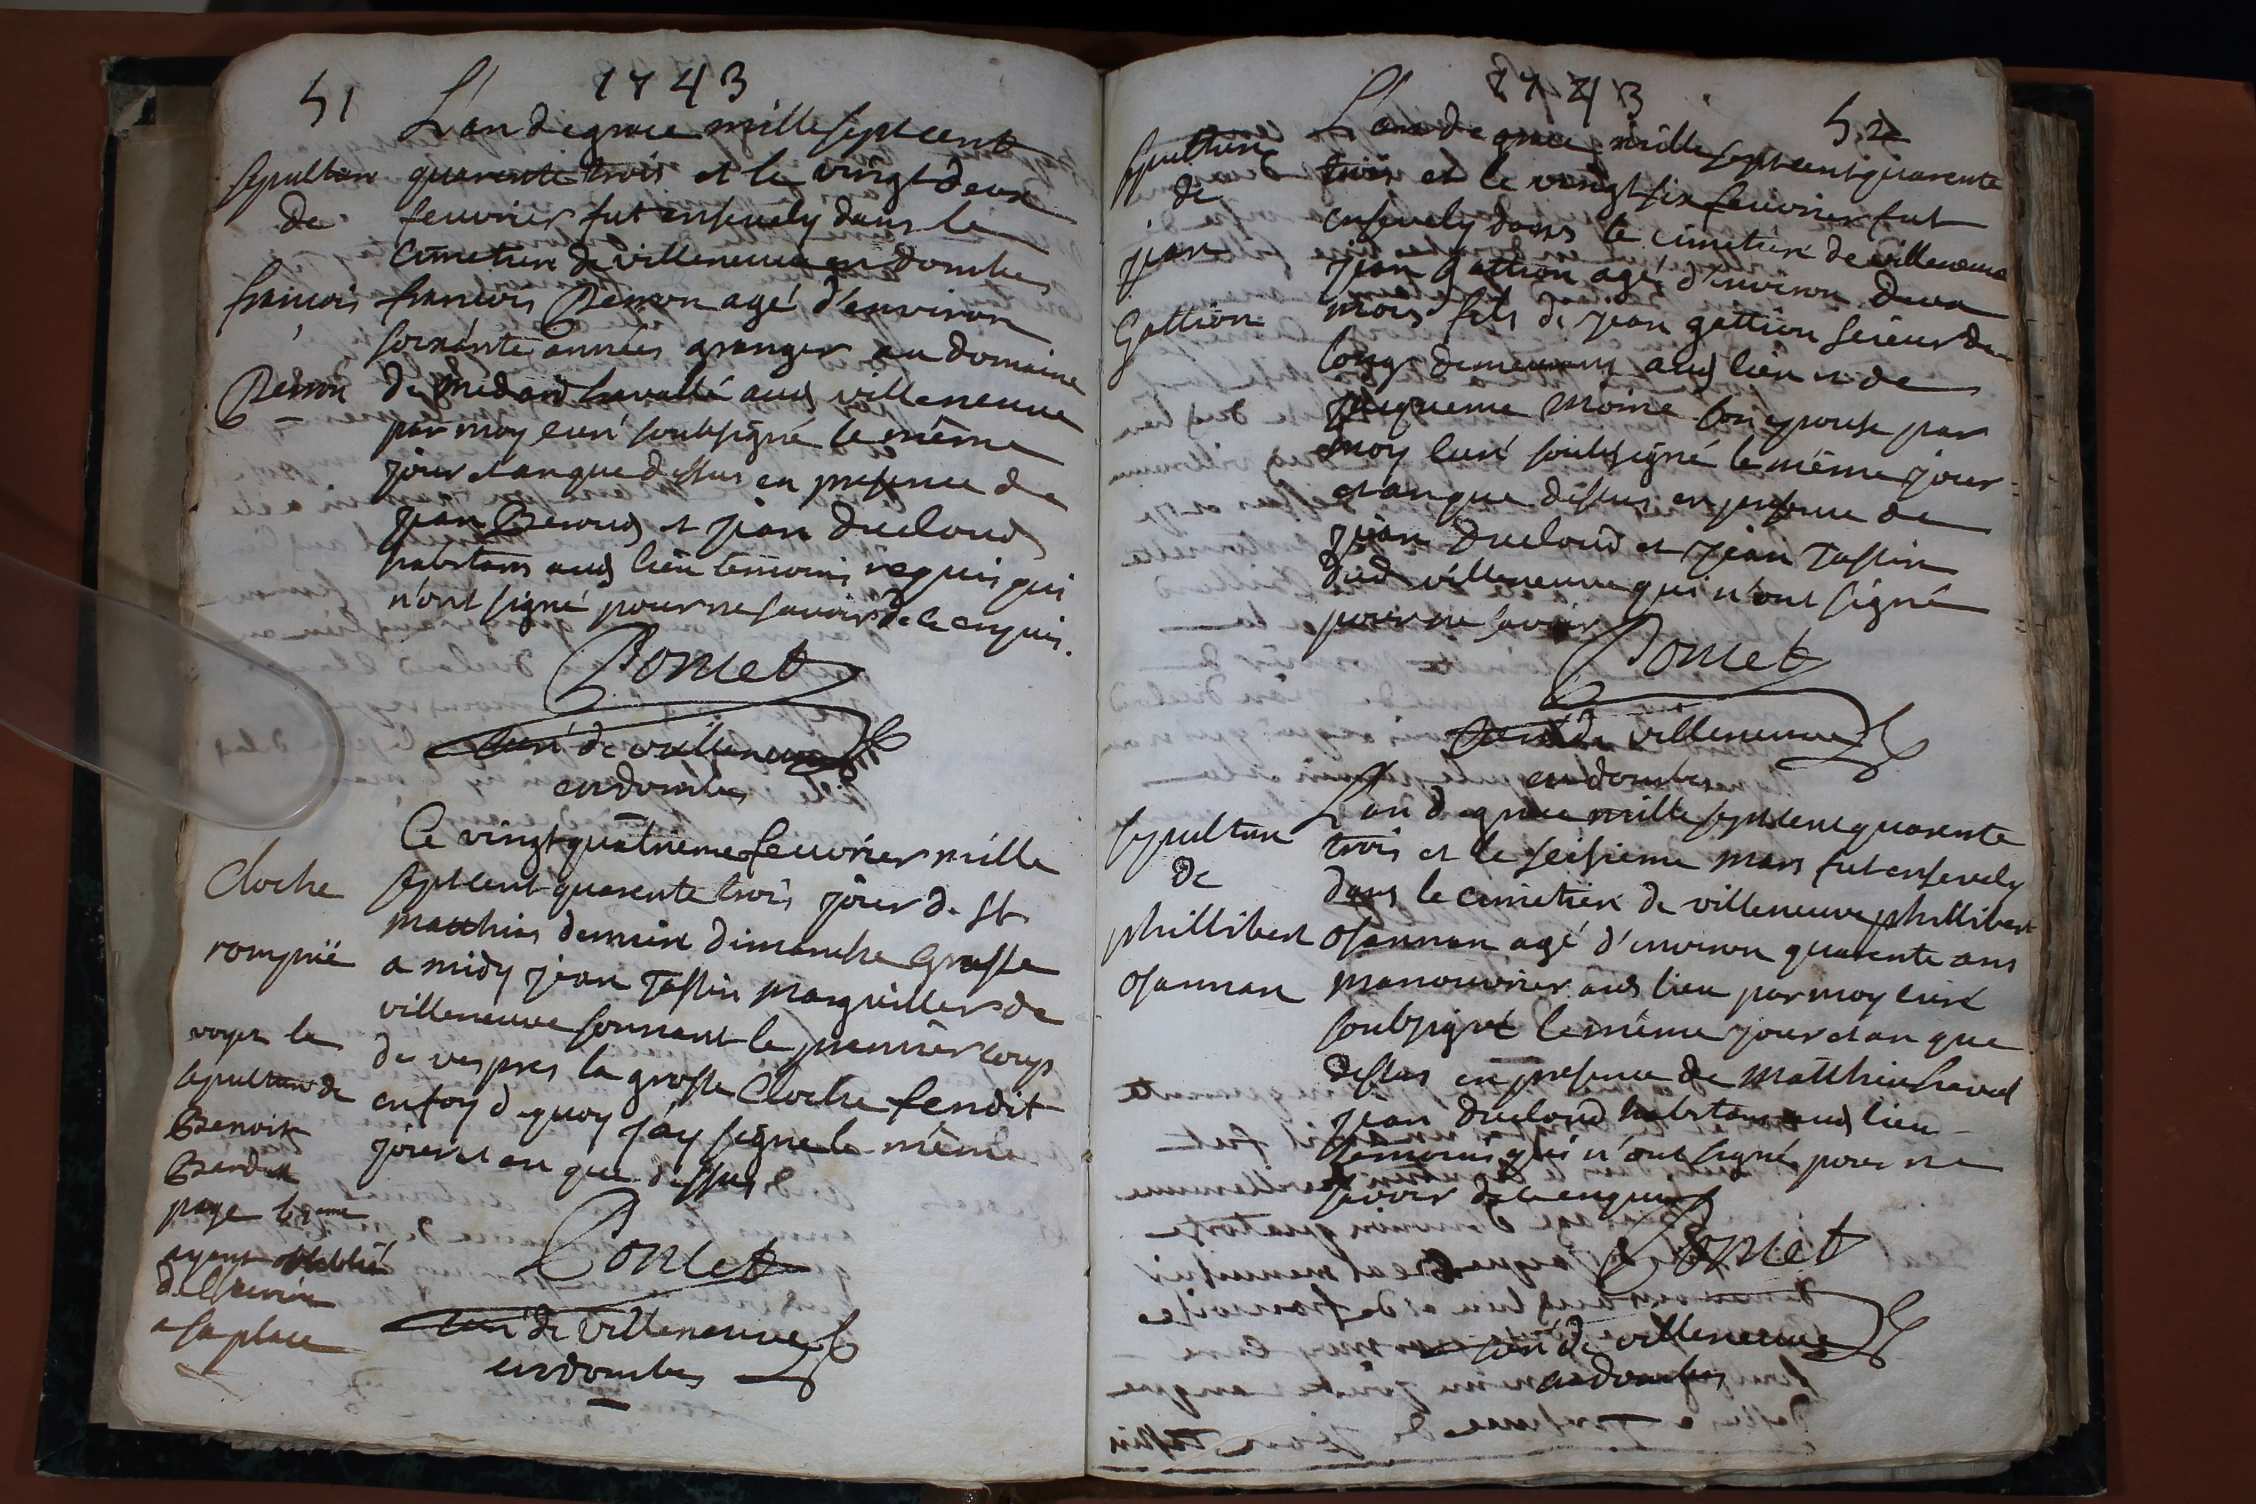 51
1743
L'an de grace mille sept cent
quarente trois et le vingt deux
feuvrier fut ensevely dans le
cimetiere de villeneuve en Dombes
francois Perron agé d'environ
soixente années granger au domaine
de aud villeneuve
par moy curé soubsigné le même
jour et an que dessus en presence de
jean Beroud et jean Ducloud
habitans aud lieu temoins requis qui
n'ont signé pour ne savoir de ce enquis.
Poncet
curé de villeneuve
en dombes
sepulture
de
francois
Perron
Ce vingt quatrieme feuvrier mille
sept cent quarente trois jour de St
matthias dernier dimanche grasse
a midy jean Tassin marguiller de
villeneuve sonnant le premier coup
de vespres la grosse Cloche fendit
en foy de quoy j'ay signe le même
jour et an que dessus
Poncet
curé de villeneuve
en dombes
Cloche
rompuë
voyez la
sepulture de
Benoit
page
ayant oublié
de l'écrire
a sa place
1743
52
L'an de grace mille sept cent quarente
trois et le vingt six feuvrier fut
ensevely dans le cimetiere de villeneuve
jean Gattion agé d'environ deux
mois fils de jean gattion scieur de
long demeurant aud lieu et de
moine son epouse par
moy curé soubsigné le même jour
et an que dessus en presence de
jean Ducloud et jean Tassin
dud villeneuve qui n'ont signé
pour ne savoir
Poncet
curé de villeneuve
en dombes
sepulture
de
jean
Gattion
L'an de grace mille sept cent quarente
trois et le seisieme mars fut ensevely
dans le cimetiere de villeneuve phillibert
osannan agé d'environ quarente ans
manouvrier aud lieu par moy curé
soubsigné le même jour et an que
dessus en presence de Matthieu
jean Ducloud habitans aud lieu
temoins qui n'ont signé pour ne
savoir de ce enquis
Poncet
curé de villeneuve
en dombes
sepulture
de
phillibert
osannan